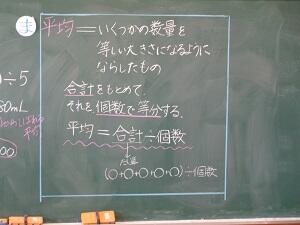 ま
平均＝いくつかの数量を
等しい大きさになるように
ならしたもの
合計をもとめて、
それを個数で等分する。
平均＝合計÷個数
たし算
(○+○+○+○+○)÷個数
÷5
80mL
平均